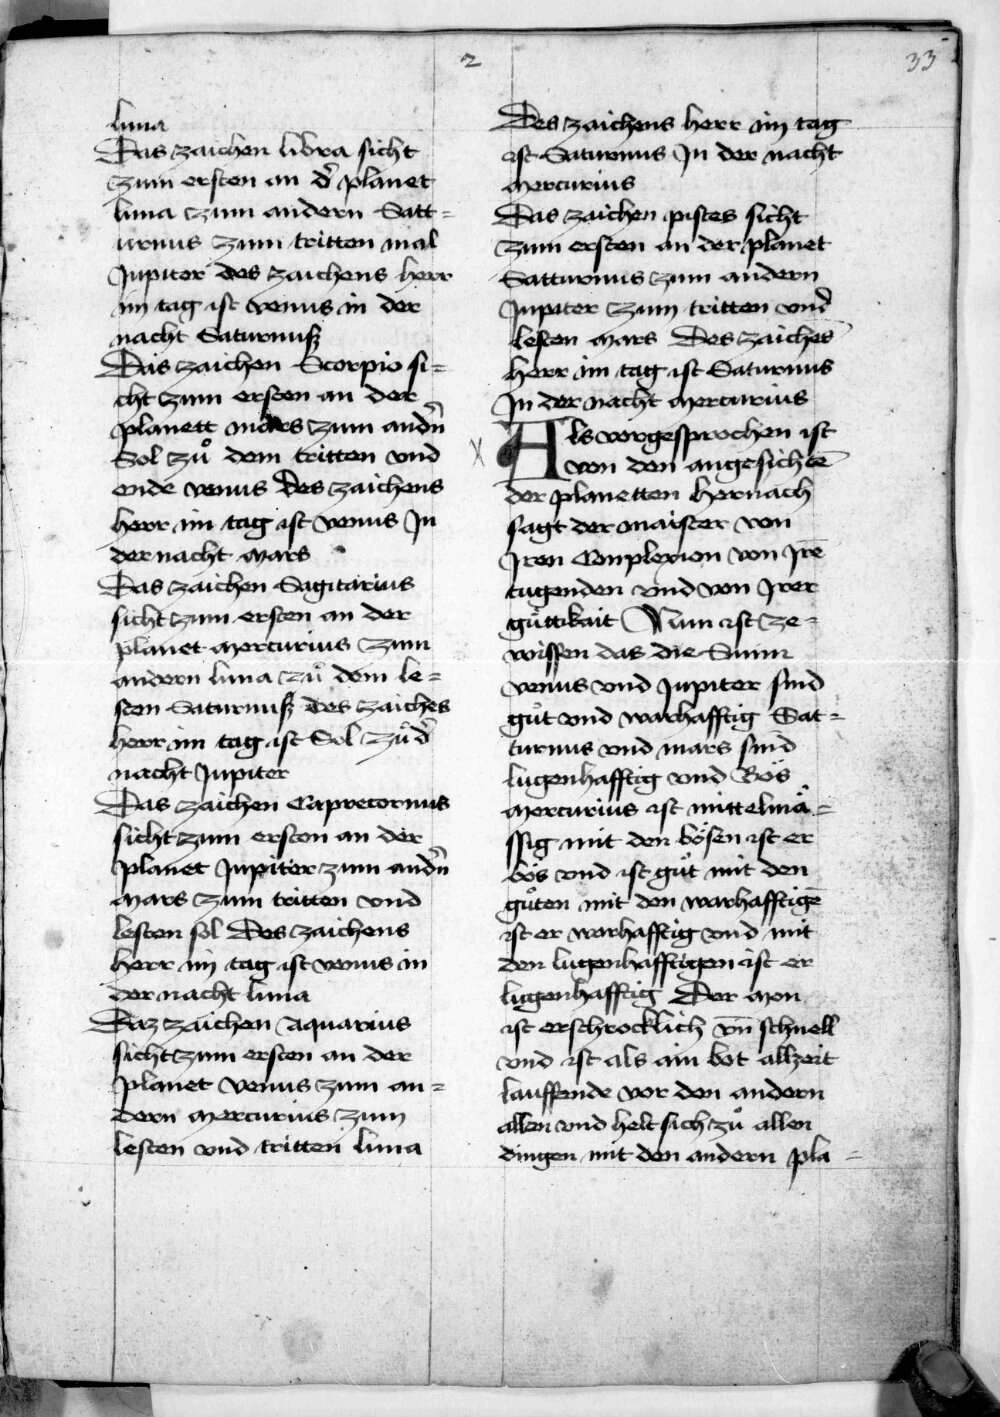 2
33
luna
Das zaichen libra sicht
zum ersten an d͛ planet
luna zum andern Satt=
urnus zum tritten mal
Jupiter des zaichens herr
im tag ist venus in der
nacht Saturnuß
Das zaichen Scorpio si=
cht zum ersten an der
planett mars zum andn͛
Sol zů dem tritten vnd
ende venus Des zaichens
herr im tag ist venus Jn
der nacht mars
Das zaichen Sagitarius
sicht zum ersten an der
planet mercurius zum
andern luna zů dem le=
sten Saturnuß des zaiches
herr im tag ist Sol zů d͛
nacht Jupiter
Das zaichen Capretornus
sicht zum ersten an der
planet Jupiter zum andn͛
mars zum tritten vnd
lesten sol Des zaichens
herr im tag ist venus in
der nacht luna
Daz zaichen Aquarius
sicht zum ersten an der
planet venus zum an=
dern mercurius zum
lesten vnd tritten luna
Des zaichens herr im tag
ist Saturnus Jn der nacht
mercurius
Das zaichen pisces sicht
zum ersten an der planet
Satturnus zum andern
Jupiter zum tritten vnd͛
lesten mars Des zaiches̄
herr im tag ist Saturnus
Jn der nacht mercurius
Als vorgesprochen ist
von den angesichtē
der planetten hernach
sagt der maister von
Jren Conplexion von Jrē
tugenden vnd von Jrer
gůttikait Nun ist ze=
wissen das die Sunn
venus vnd Jupiter sind
gůt vnd warhafftig Sat=
turnus vnd mars sind
lugenhafftig vnd Bös
mercurius ist mittelmå=
ssig mit den bösen ist er
bös vnd ist gůt mit den
gůten mit den warhafftigē
ist er warhafftig vnd mit
den lugenhafftigen ist er
lugenhafftig Der mon
ist erschrocklich vn̄ schnell
vnd ist als ain bot allzeit
lauffende vor den andern
allen vnd helt sich zů allen
dingen mit den andern pla=